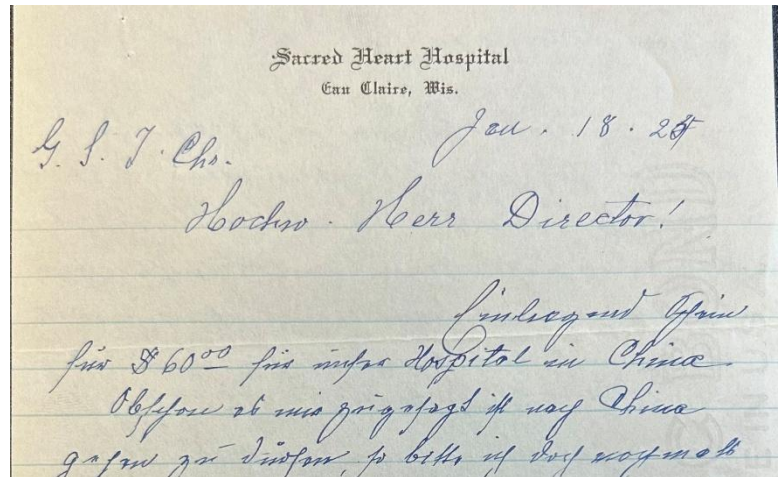 Sacred Heart Hospital
Eau Claire, Wis.
Jan. 18. 25
G. S. J. Chr.
Hochw. Herr Director!
Einliegend Schein
für $ 60 00 für unser Hospital in China
Obschon es mir zugesagt ist nach China
gehen zu dürfen, so bitte ich doch nochmals